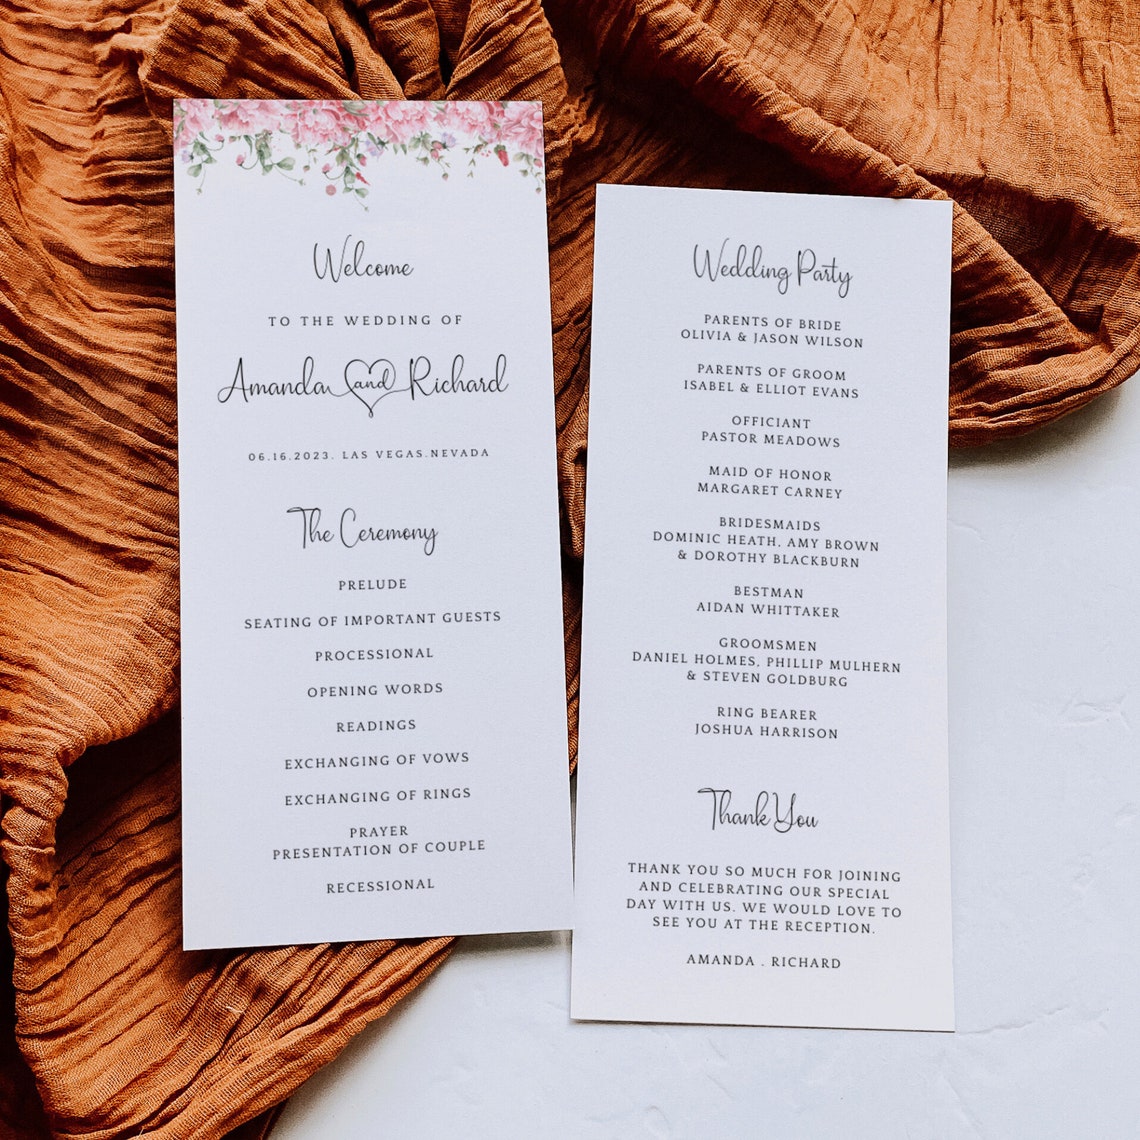 Welcome
TO THE WEDDING OF
Amanda and Richard
06.16.2023. LAS VEGAS.NEVADA
The Ceremony
PRELUDE
SEATING OF IMPORTANT GUESTS
PROCESSIONAL
OPENING WORDS
READINGS
EXCHANGING OF VOWS
EXCHANGING OF RINGS
PRAYER
PRESENTATION OF COUPLE
RECESSIONAL
Wedding Party
PARENTS OF BRIDE
OLIVIA & JASON WILSON
PARENTS OF GROOM
ISABEL & ELLIOT EVANS
OFFICIANT
PASTOR MEADOWS
MAID OF HONOR
MARGARET CARNEY
BRIDESMAIDS
DOMINIC HEATH, AMY BROWN
& DOROTHY BLACKBURN
BESTMAN
AIDAN WHITTAKER
GROOMSMEN
DANIEL HOLMES, PHILLIP MULHERN
& STEVEN GOLDBURG
RING BEARER
JOSHUA HARRISON
Thank You
THANK YOU SO MUCH FOR JOINING
AND CELEBRATING OUR SPECIAL
DAY WITH US. WE WOULD LOVE TO
SEE YOU AT THE RECEPTION.
AMANDA . RICHARD